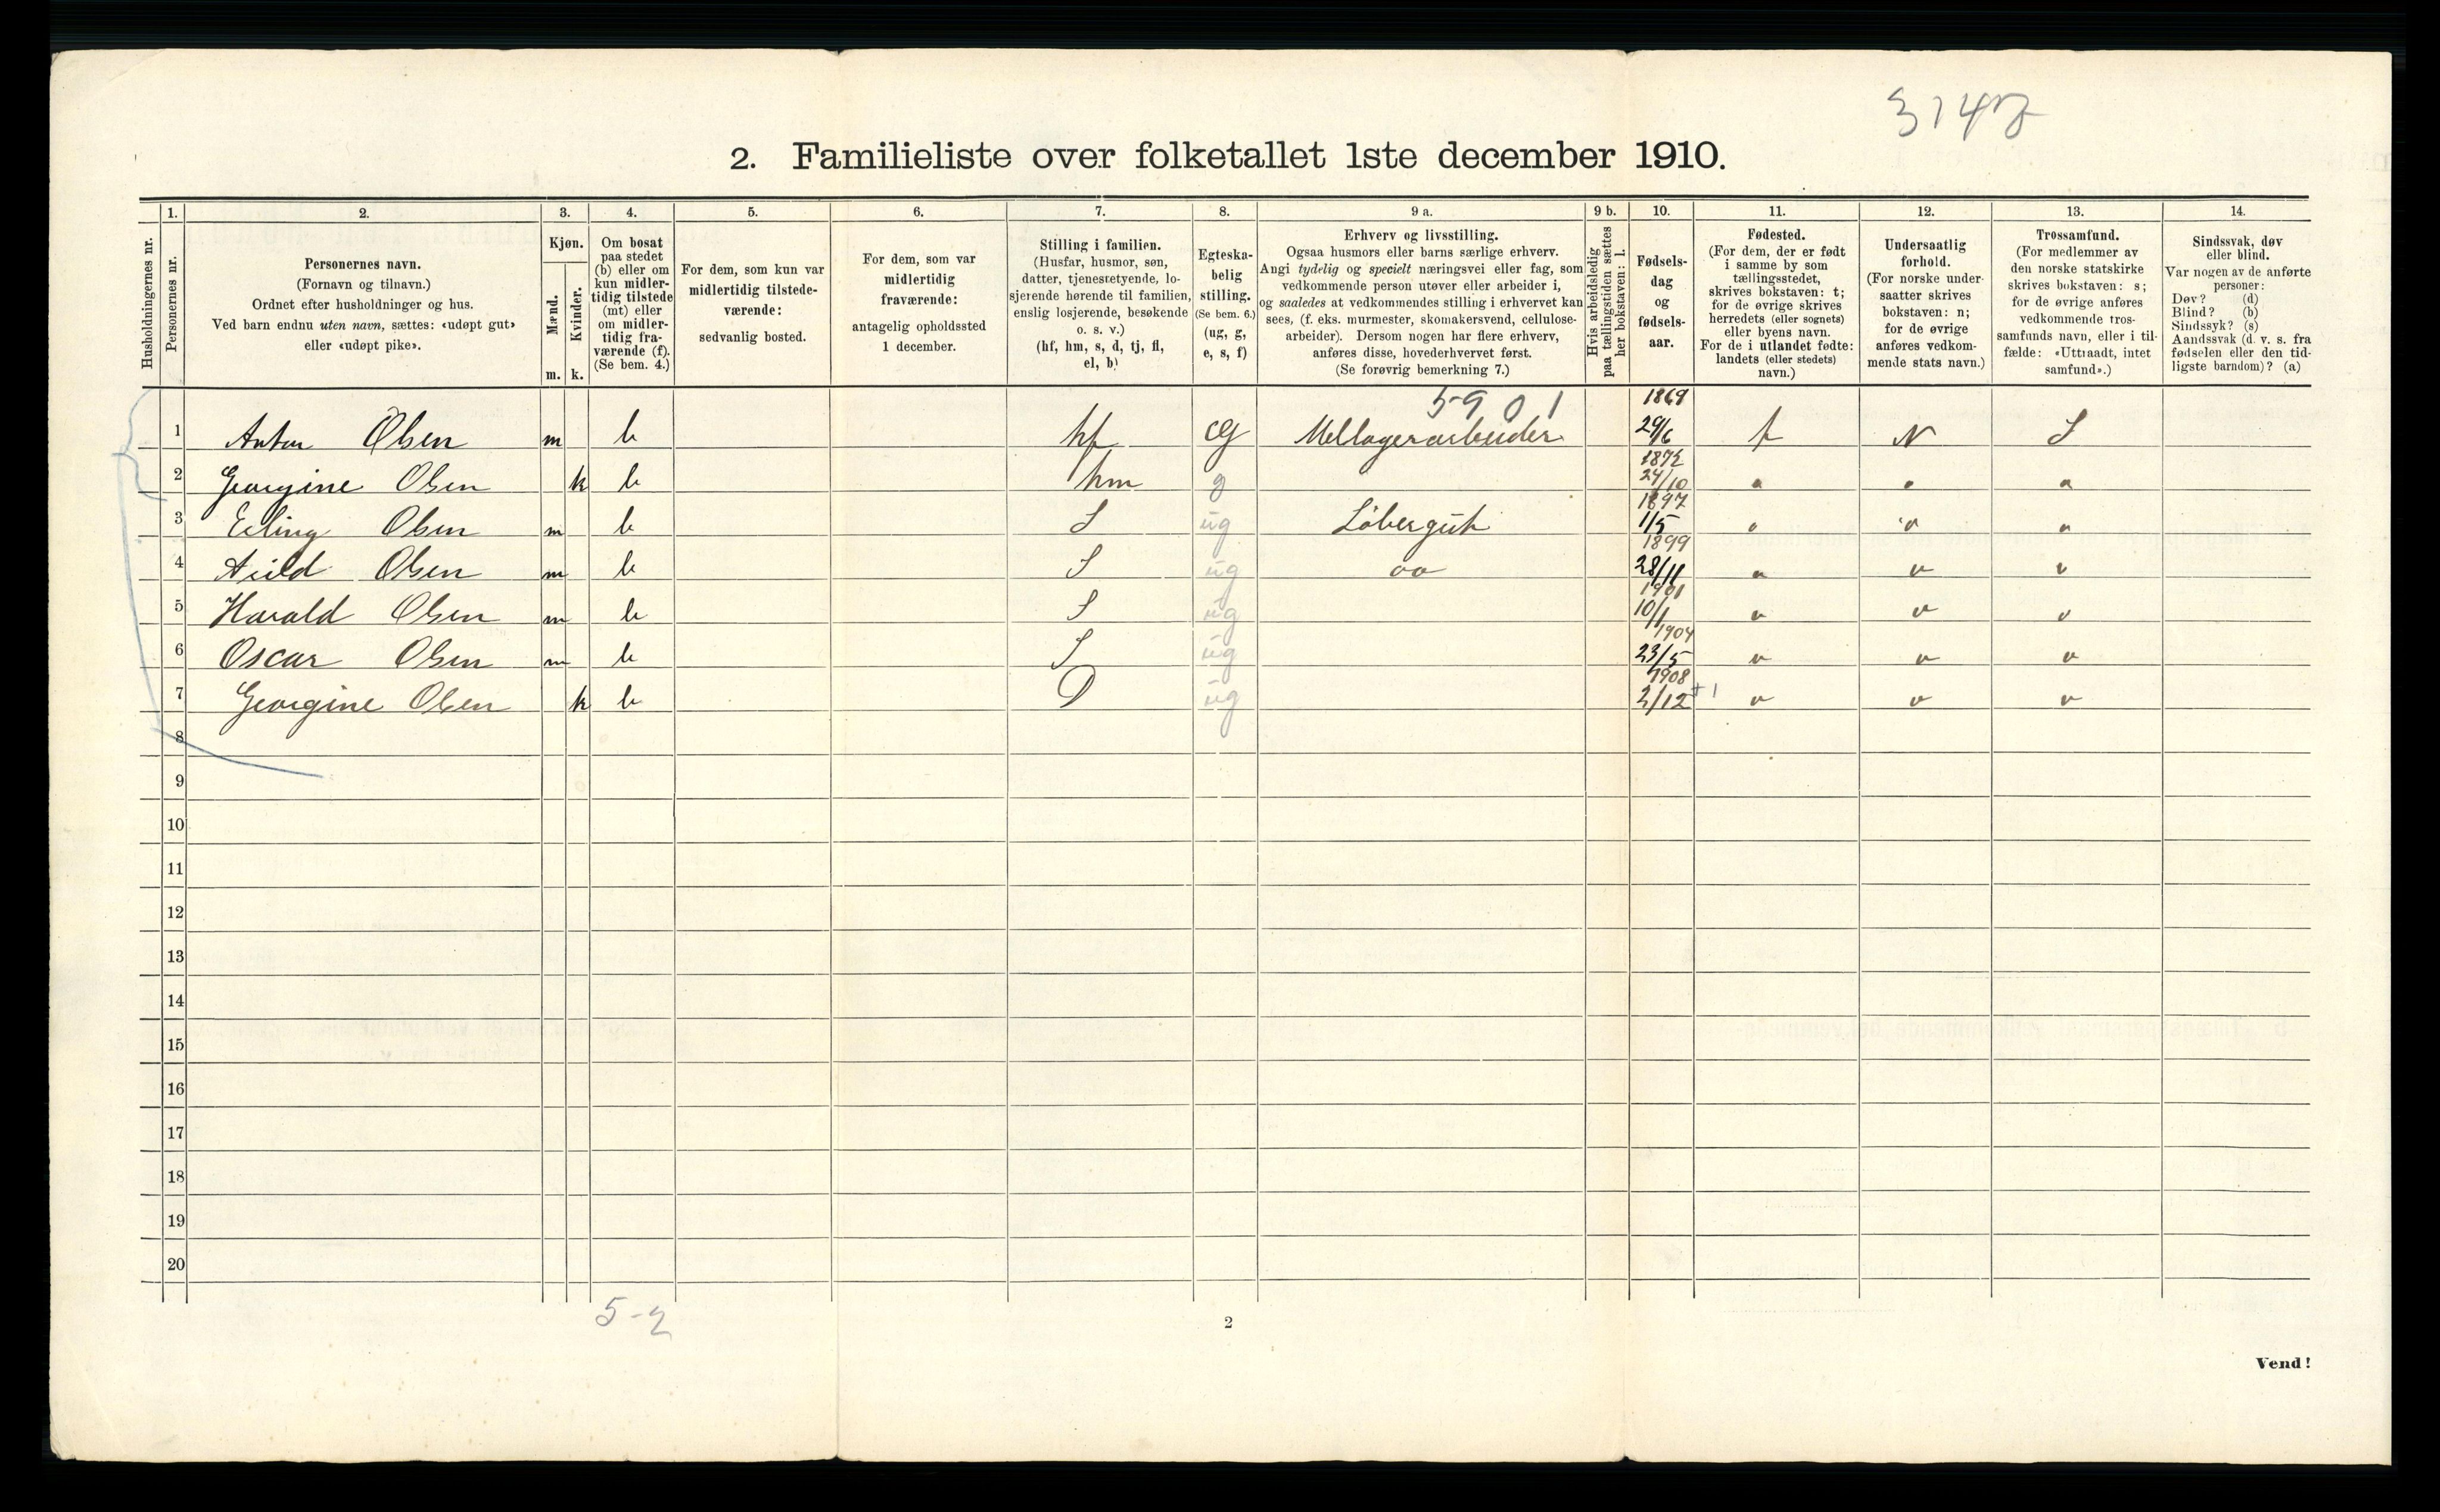 3142
2. Familieliste over folketallet 1ste december 1910.
Husholdningernes nr.
1. 2. 3. 4. 5. 6. 7. 8. 9 a. 9 b. 10. 11. 12. 13. 14.
Personernes nr.
Personernes navn.
(Fornavn og tilnavn.)
Ordnet efter husholdninger og hus.
Ved barn endnu uten navn, sættes: «udøpt gut»
eller «udøpt pike».
Kjøn.
Mænd.
Kvinder.
m. k.
Om bosat
paa stedet
(b) eller om
kun midler-
tidig tilstede
(mt) eller
om midler-
tidig fra-
værende (f).
(Se bem. 4.)
For dem, som kun var
midlertidig tilstede-
værende:
sedvanlig bosted.
For dem, som var
midlertidig
fraværende:
antagelig opholdssted
1 december.
Stilling i familien.
(Husfar, husmor, søn,
datter, tjenestetyende, lo-
sjerende hørende til familien,
enslig losjerende, besøkende
o. s. v.)
(hf, hm, s, d, tj, fl,
el, b)
Egteska-
belig
stilling.
(Se bem. 6.)
(ug, g,
e, s, f)
Erhverv og livsstilling.
Ogsaa husmors eller barns særlige erhverv.
Angi tydelig og specielt næringsvei eller fag, som
vedkommende person utøver eller arbeider i,
og saaledes at vedkommendes stilling i erhvervet kan
sees, (f. eks. murmester, skomakersvend, cellulose-
arbeider). Dersom nogen har flere erhverv,
anføres disse, hovederhvervet først.
(Se forøvrig bemerkning 7.)
Hvis arbeidsledig
paa tællingstiden sættes
her bokstaven: l.
Fødsels-
dag
og
fødsels-
aar.
Fødested.
(For dem, der er født
i samme by som
tællingsstedet,
skrives bokstaven: t;
for de øvrige skrives
herredets (eller sognets)
eller byens navn.
For de i utlandet fødte:
landets (eller stedets)
navn.)
Undersaatlig
forhold.
(For norske under-
saatter skrives
bokstaven: n;
for de øvrige
anføres vedkom-
mende stats navn.)
Trossamfund.
(For medlemmer av
den norske statskirke
skrives bokstaven: s;
for de øvrige anføres
vedkommende tros-
samfunds navn, eller i til-
fælde: «Uttraadt, intet
samfund».)
Sindssvak, døv
eller blind.
Var nogen av de anførte
personer:
Døv? (d)
Blind? (b)
Sindssyk? (s)
Aandssvak (d. v. s. fra
fødselen eller den tid-
ligste barndom)? (a)
5901 1869
1 Anton Olsen m b hf g Mellagerarbeider 29/6 t N S
1872
2 Georgine Olsen k b hm g 24/10 " " "
1897
3 Erling Olsen m b S ug Løbergut 1/5 " " "
1899
4 Arild Olsen m b S ug oo 28/11 " " "
1901
5 Harald Olsen m b S ug 10/1 " " "
1904
6 Oscar Olsen m b S ug 23/5 " " "
1908
7 Georgine Olsen k b D ug 2/12 +1 " " "
8
9
10
11
12
13
14
15
16
17
18
19
20
5-2
2
Vend!